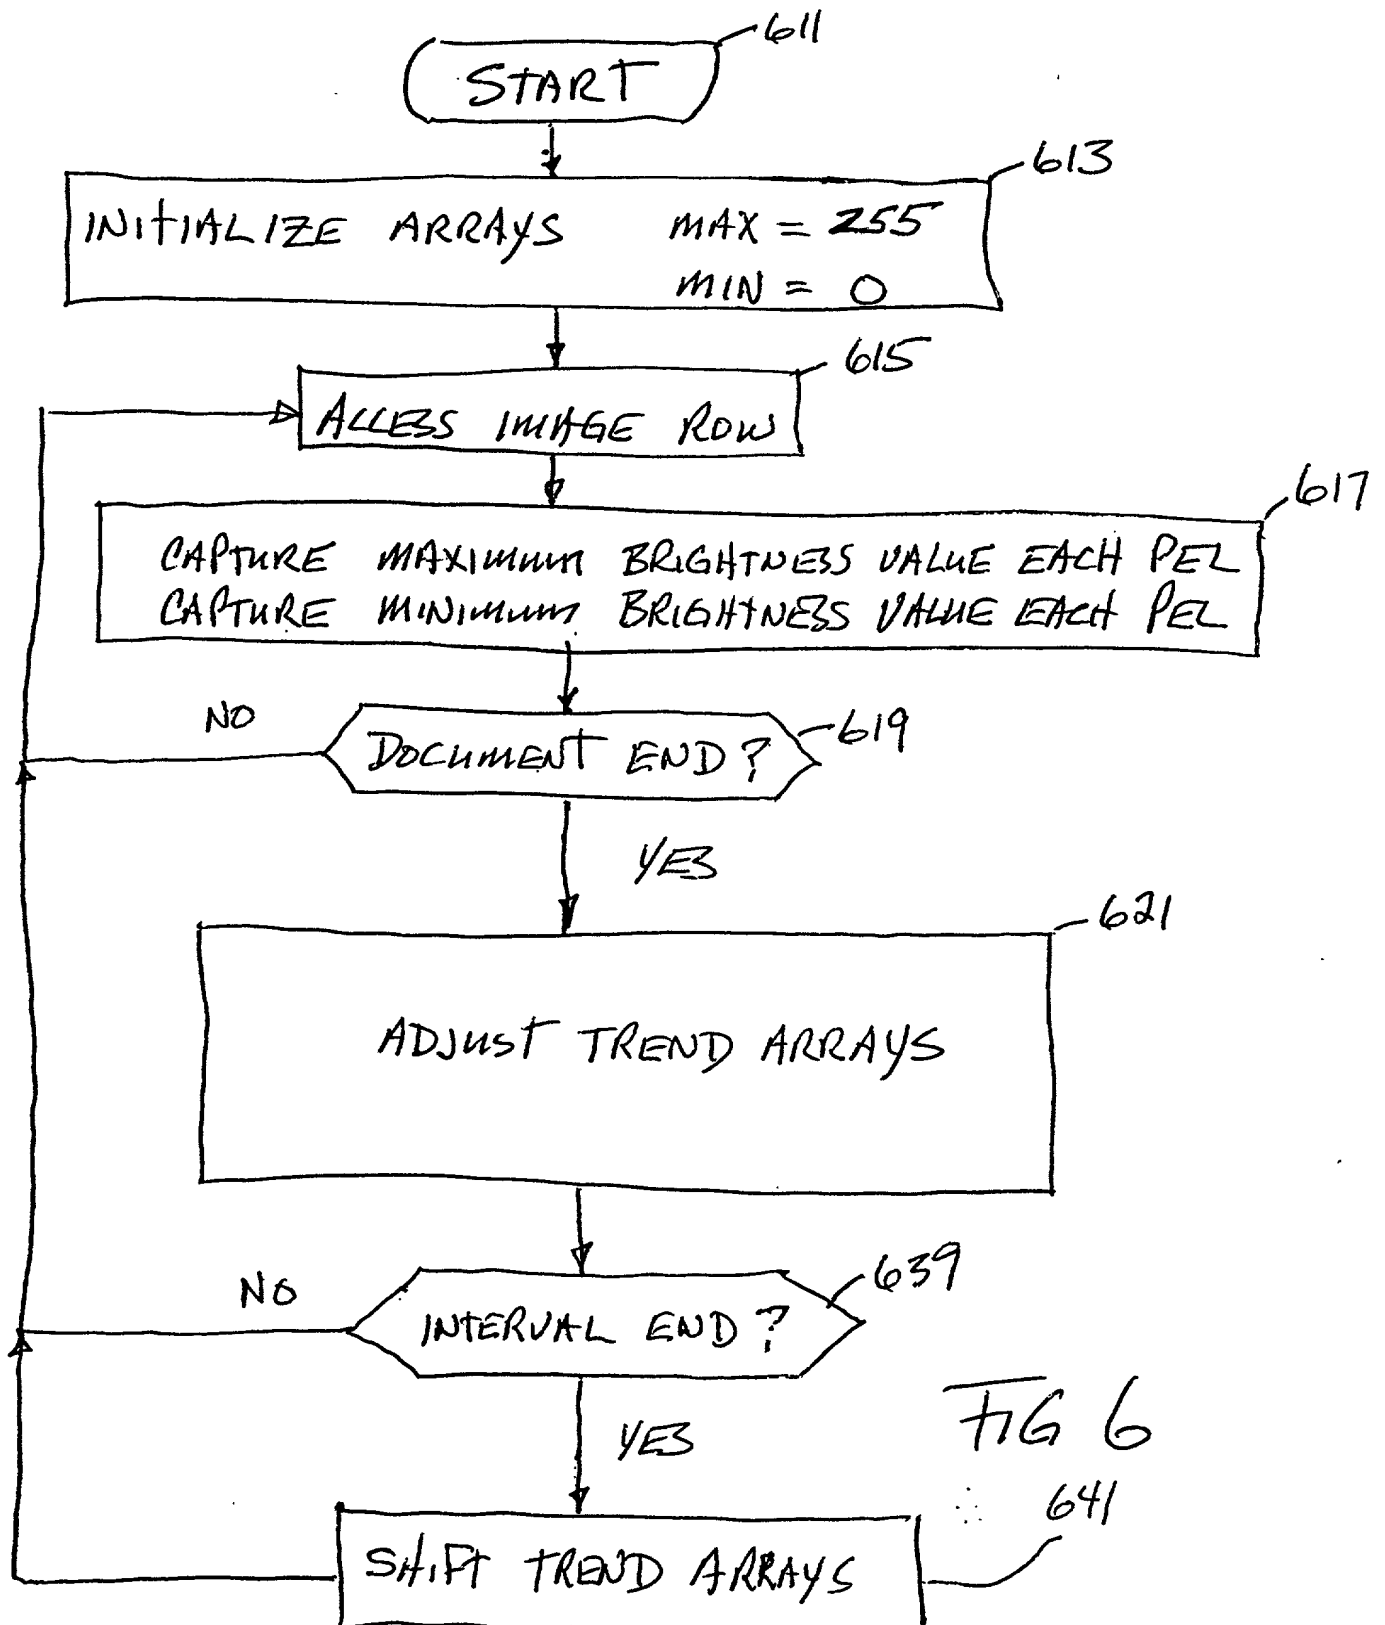 611
START
613
INITIALIZE ARRAYS MAX = 255
MIN = 0
615
ACCESS IMAGE ROW
617
CAPTURE MAXIMUM BRIGHTNESS VALUE EACH PEL
CAPTURE MINIMUM BRIGHTNESS VALUE EACH PEL
NO
619
DOCUMENT END?
YES
621
ADJUST TREND ARRAYS
639
NO
INTERVAL END?
FIG 6
YES
641
SHIFT TREND ARRAYS